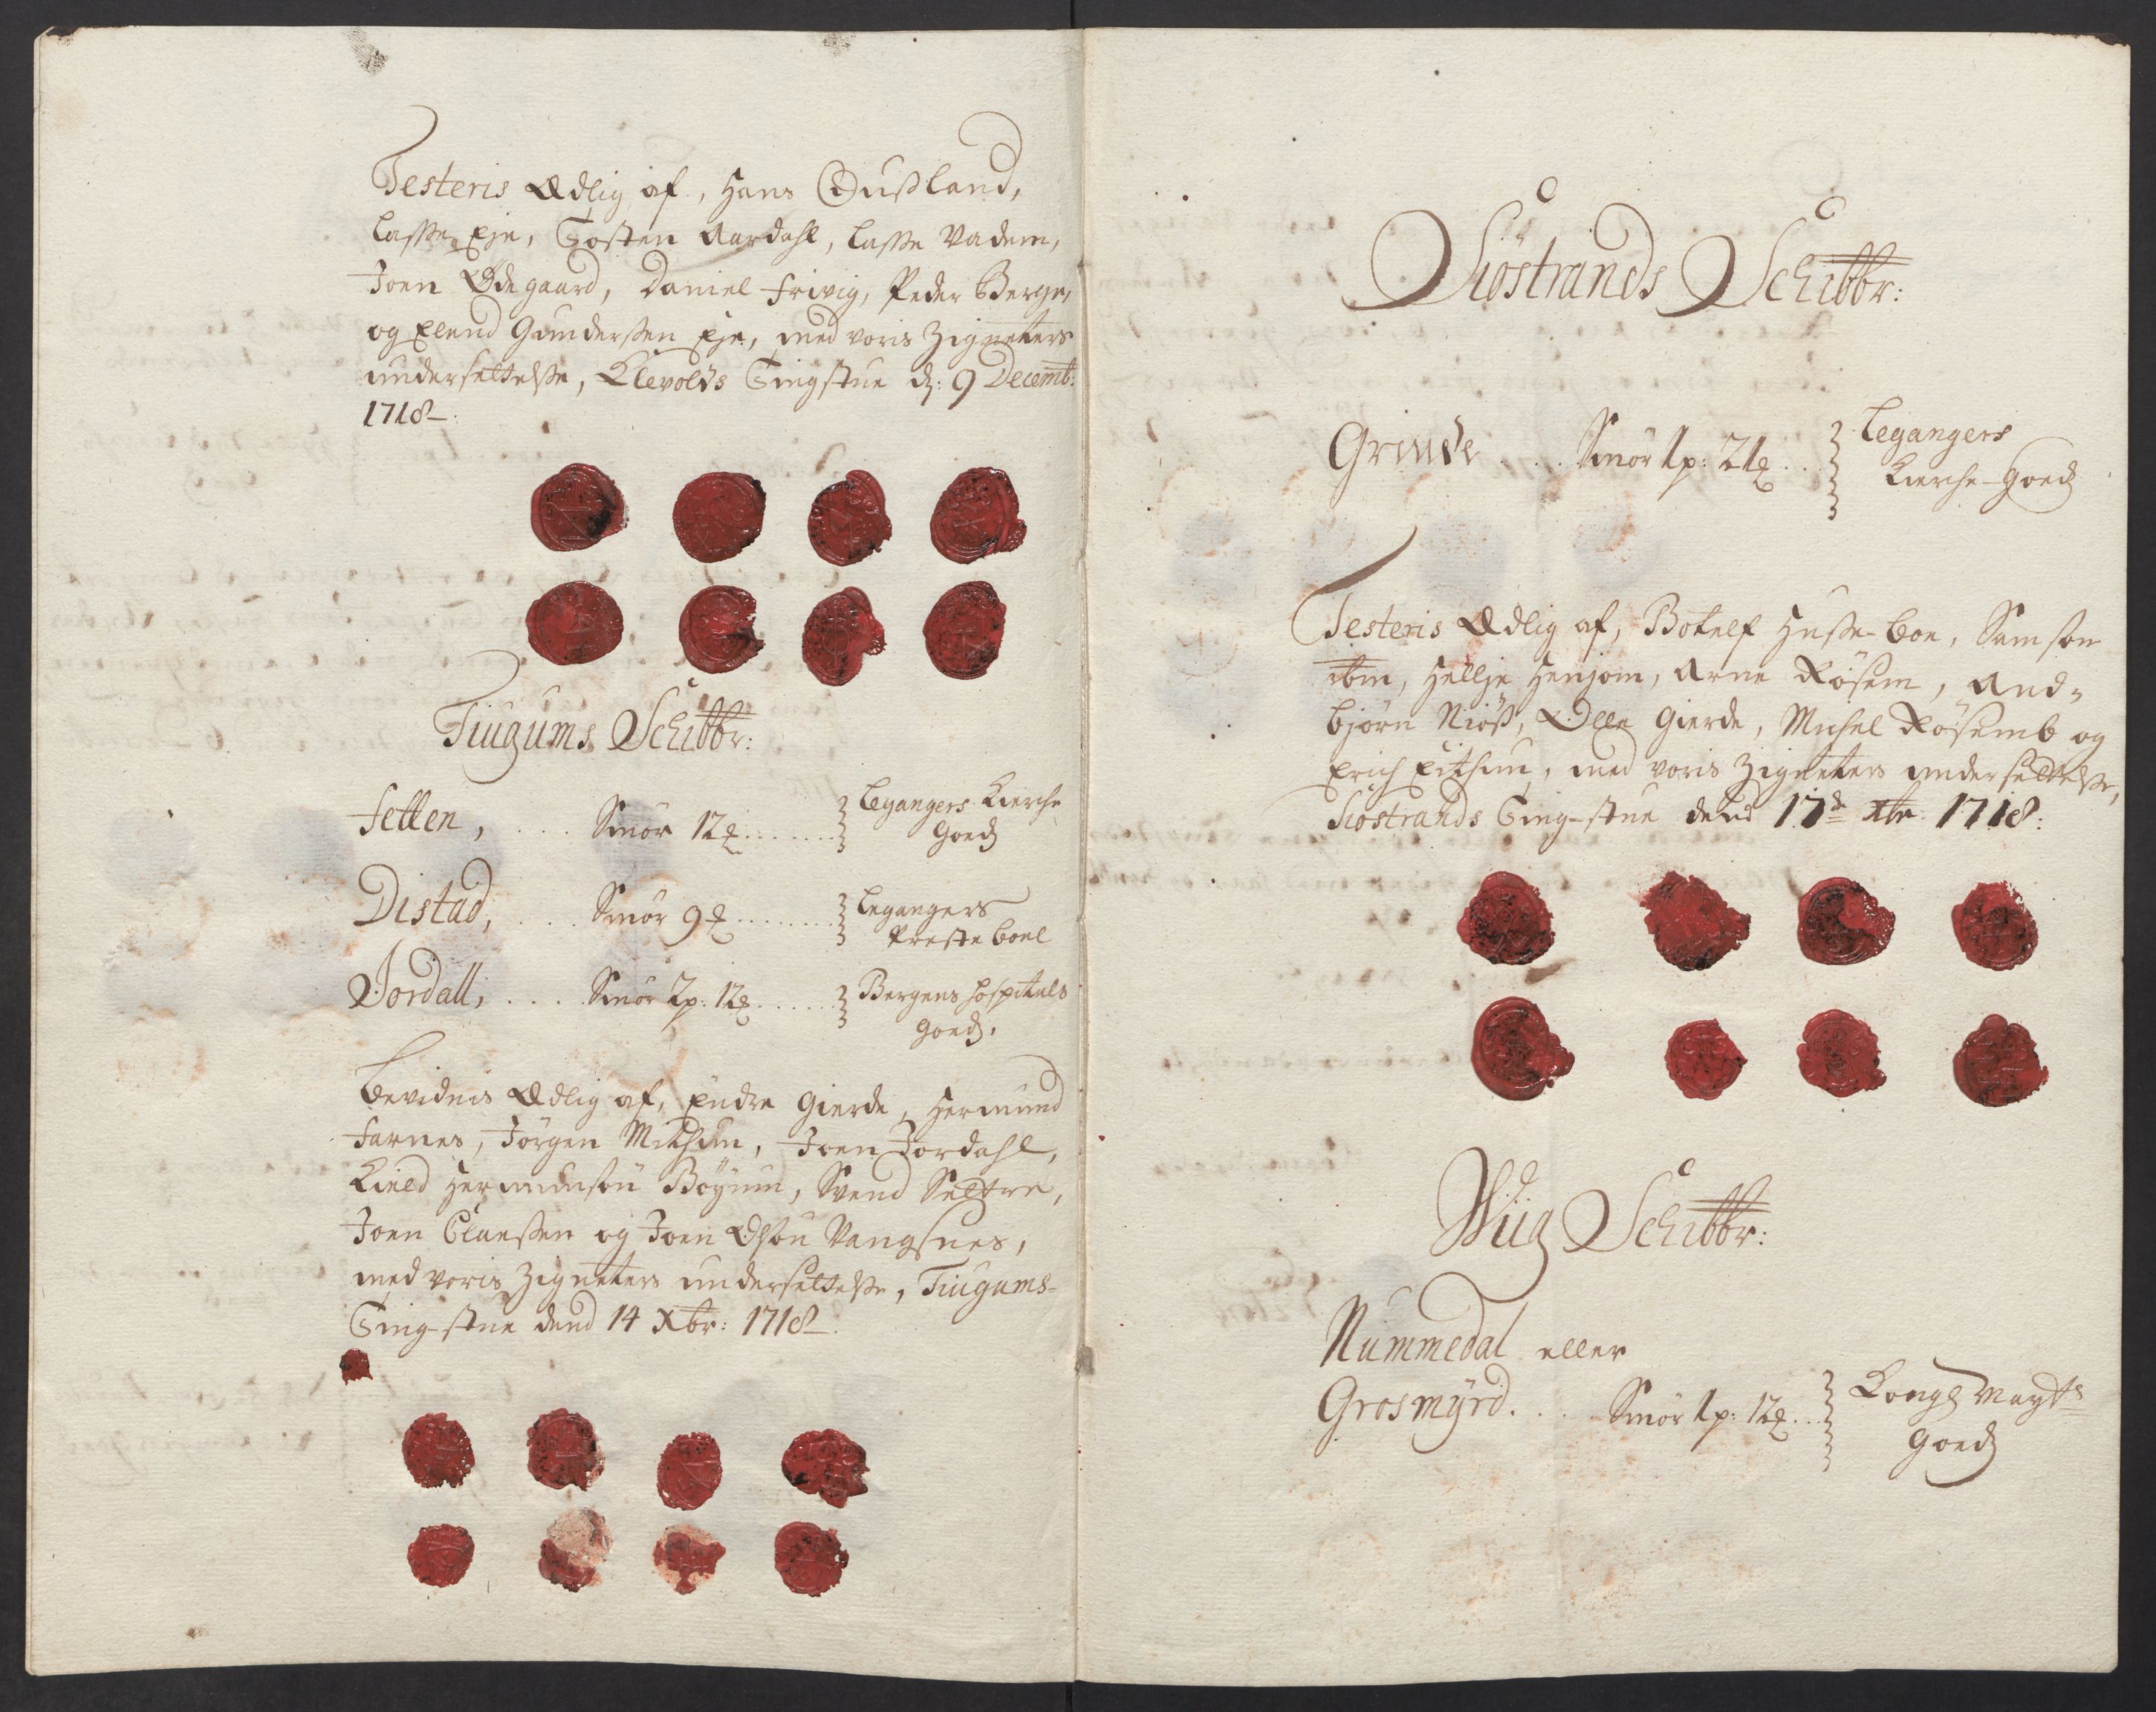 Testeris Ædlig af, Hans Qußland,
Lasse Eje, Tosten Aardahl, Lasse Vadem,
Joen Ødegaard, Daniel Frivig, Peder Berge,
og Elend Gunderßen Eje, med voris Zigneters
undersettelße, Klevolds Tingstue d: 9 Decemb:
1718
Tiugums Schibbr:
Fetten, .... Smör 12 ....... Legangers Kierche
Goeds
Distad, .... Smör 9 ....... Legangers
Preste boel
Jordall, .... Smör 2p: 12 ...... Bergens Hospitals
goeds.
Bevidnis Ædlig af, Endre Gierde, Hermund
Farnes, Jörgen Midhun, Joen Jordahl,
Kield Hermunsön Böyum, Svend Seltre,
Joen Claußen og Joen Olsön Vangsnes,
med voris Zigneters undersettelße, Tiugums
Ting-stue dend 14 Xbr: 1718
Siöstrands Schibbr:
Grinde .... Smör 1p: 21 .. Legangers
Kierche-Goeds
Testeris Ædlig af, Botelf Huße-boe, Samson
ibm, Hellje Henjom, Arne Röseim, And-
björn Niöß, Olle Gierde, Michel Rösemb og
Erich Eithun, med voris Zigneters undersettelße,
Siöstrands Ting-stue dend 17d Xbr: 1718:
Wiig Schibbr:
Nummedal eller
Grosmÿrd. ... Smör 1p: 12 ... Kongs Mayts
Goeds